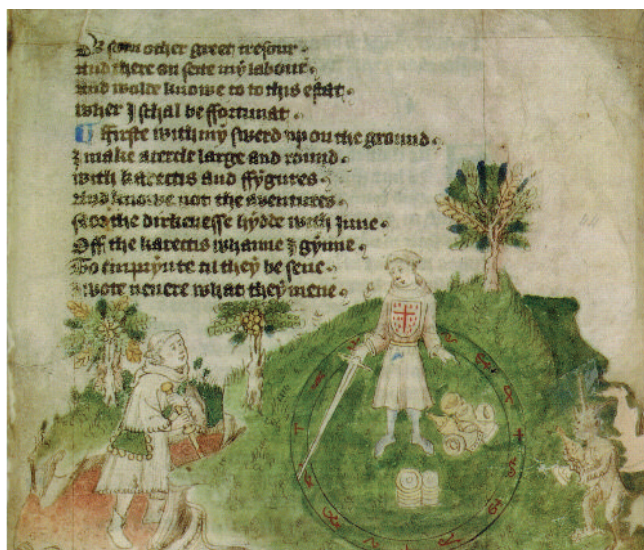 Or som other greet tresour
And there on sette my labour
And wolde knowe to to this estat
Wher I schal be ffortunat
I ffirste with my swerd up on the ground
I make a cercle large and round
With karectis and ffygures
And knowe not the aventures
For the dirkenesse hydde with Inne
Off the karectis whanne I gynne
To emprynte til they be sene
I wote nevere what they mene